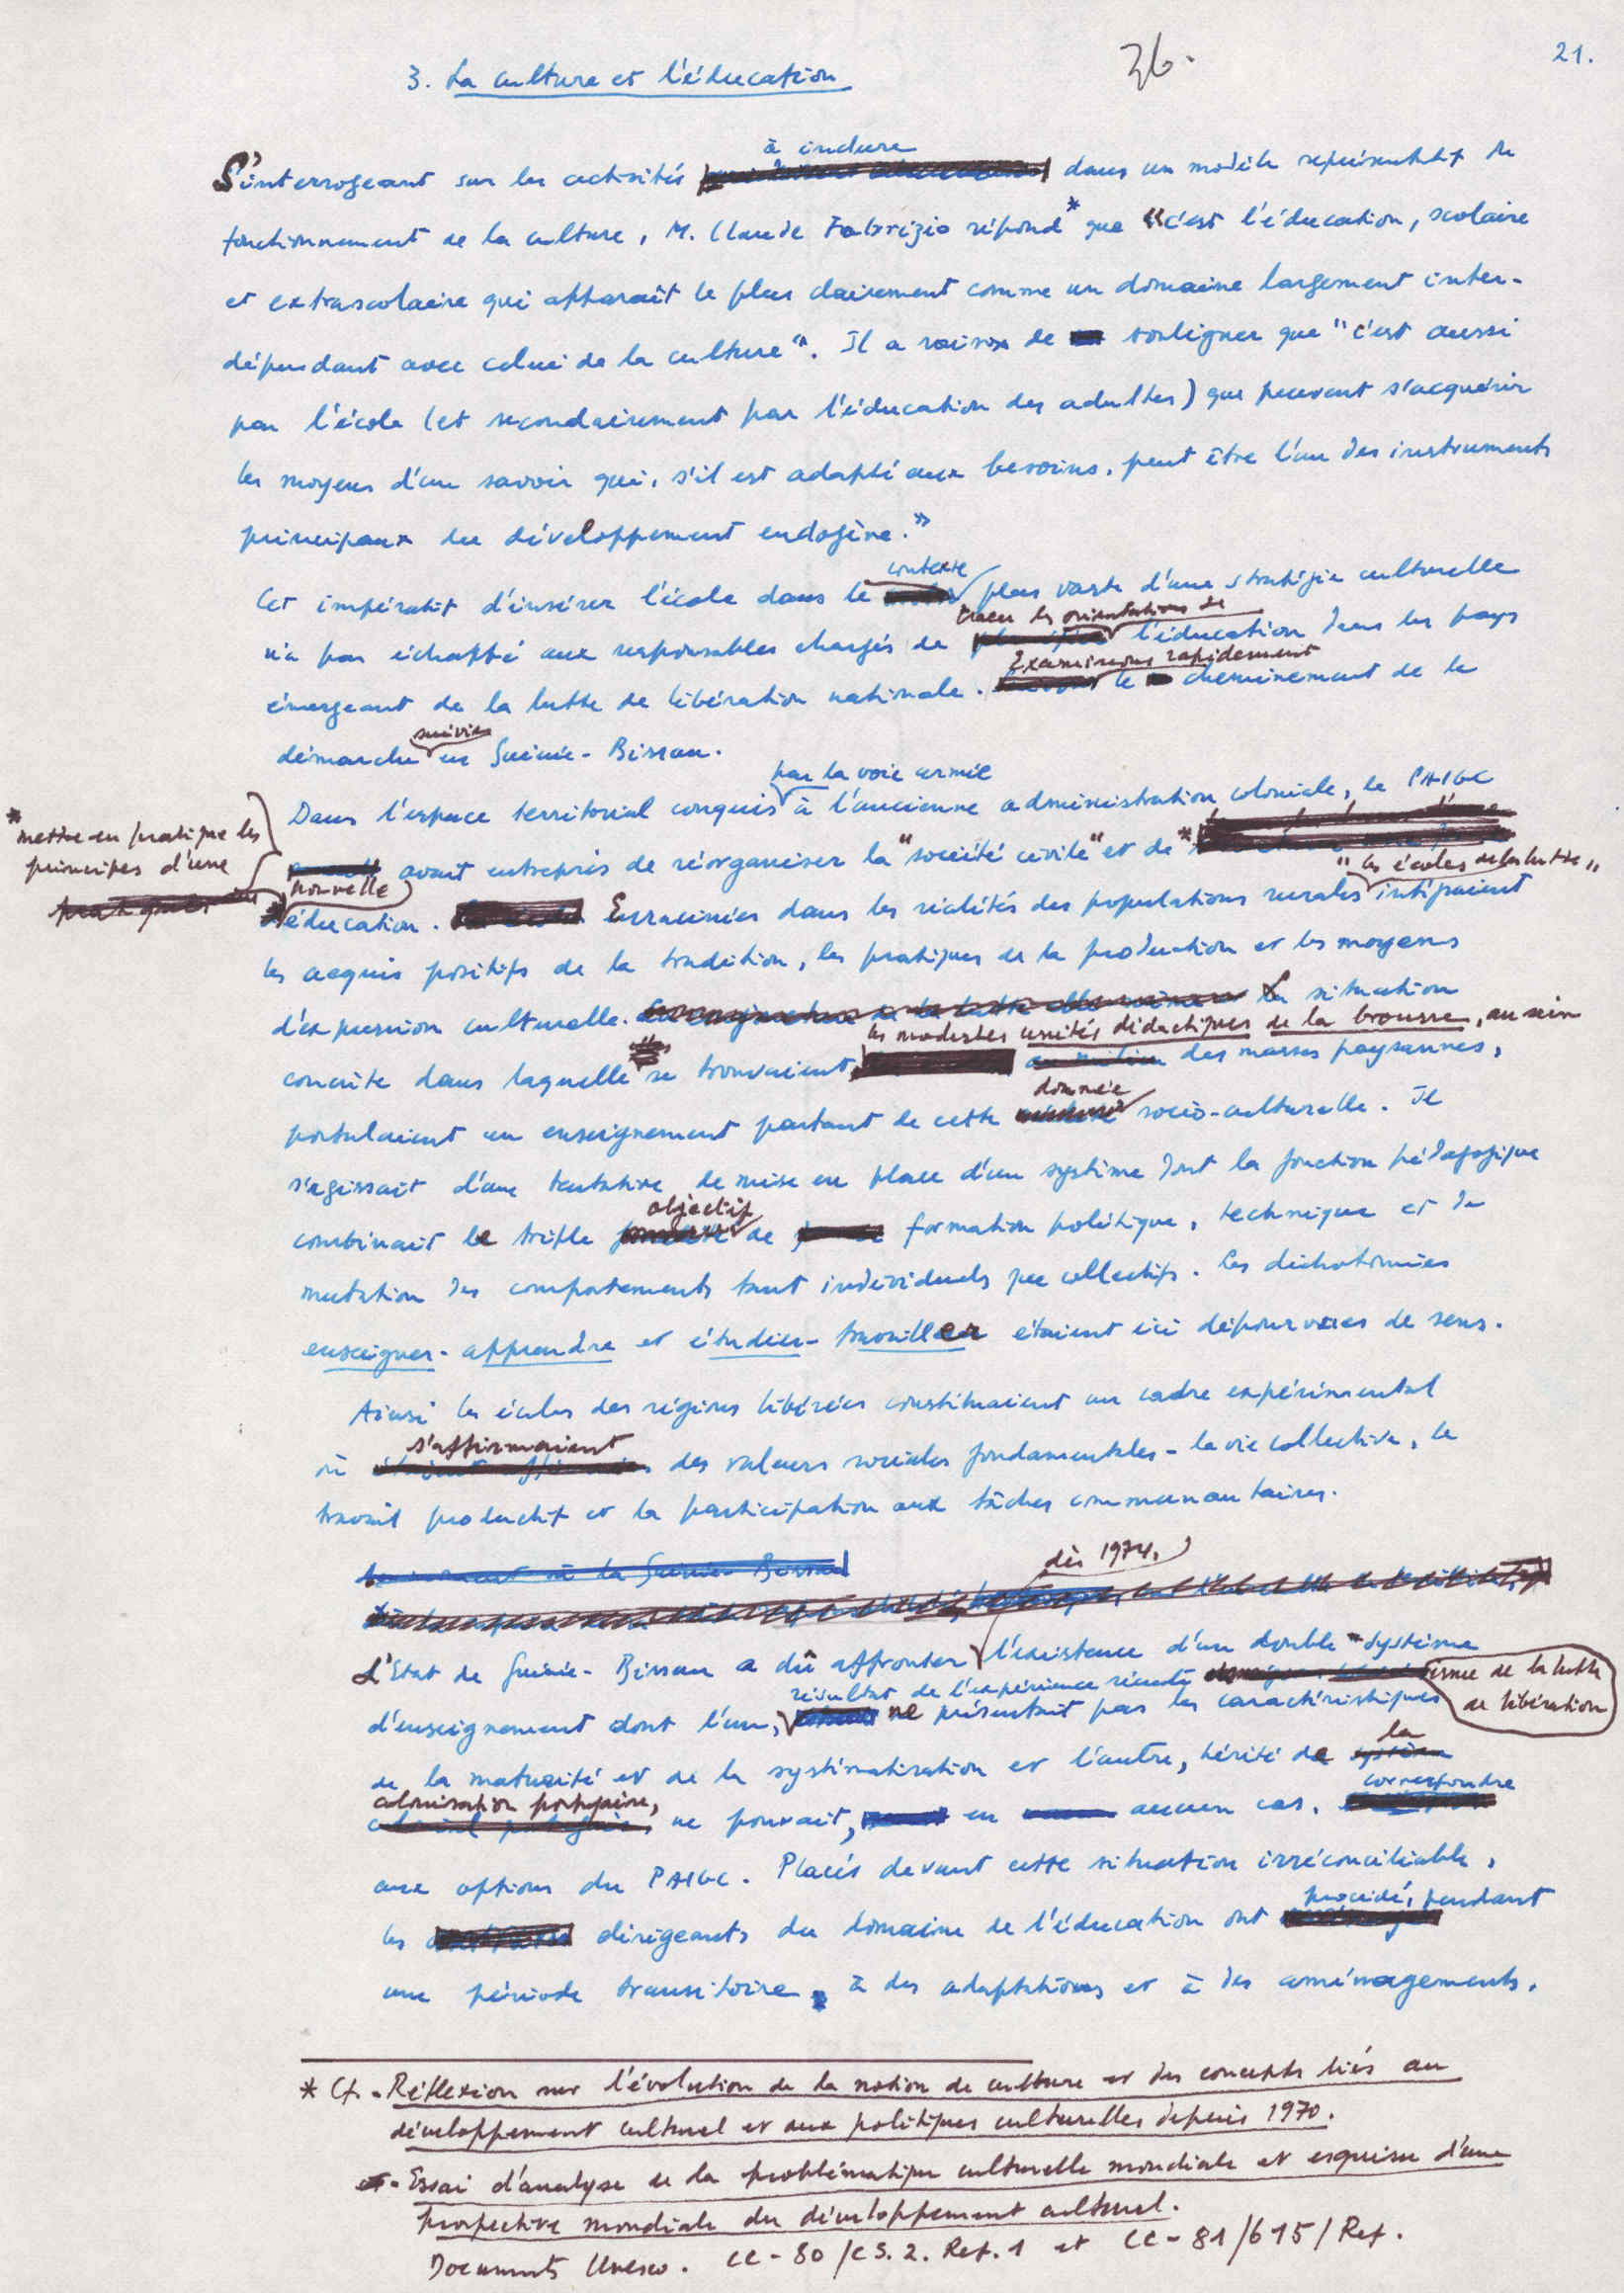 36.
21.
3. La culture et l'éducation
à inclure
S'interrogeant sur les activités dans un modèle représentatif du
fonctionnement de la culture, M. Claude Fabrizio répond* que "c'est l'éducation, scolaire
et extrascolaire qui apparaît le plus clairement comme un domaine largement inter-
dépendant avec celui de la culture". Il a raison de souligner que "c'est aussi
par l'école (et secondairement par l'éducation des adultes) que peuvent s'acquérir
les moyens d'un savoir qui, s'il est adapté aux besoins, peut être l'un des instruments
principaux du développement endogène."
contexte
Cet impératif d'insérer l'école dans le plus vaste d'une stratégie culturelle
tracer les orientations de
n'a pas échappé aux responsables chargés de l'éducation dans les pays
Examinons rapidement
émergeant de la lutte de libération nationale. le cheminement de la
suivie
démarche en Guinée-Bissau.
par la voie armée
Dans l'espace territorial conquis à l'ancienne administration coloniale, le PAIGC
* mettre en pratique les
principes d'une
avait entrepris de réorganiser la "société civile" et de *
"les écoles de la lutte"
nouvelle
éducation. Enracinées dans les réalités des populations rurales intégraient
les acquis positifs de la tradition, les pratiques de la production et les moyens
d'expression culturelle. La situation
les modestes unités didactiques de la brousse, au sein
concrète dans laquelle se trouvaient des masses paysannes,
donnée
postulaient un enseignement partant de cette socio-culturelle. Il
s'agissait d'une tentative de mise en place d'un système dont la fonction pédagogique
objectif
combinait le triple de formation politique, technique et de
mutation des comportements tant individuels que collectifs. Les dichotomies
enseigner-apprendre et étudier-travailler étaient ici dépourvues de sens.
Ainsi les écoles des régions libérées constituaient un cadre expérimental
s'affirmaient
où des valeurs sociales fondamentales - la vie collective, le
travail productif et la participation aux tâches communautaires.
dès 1974,
L'Etat de Guinée-Bissau a dû affronter l'existence d'un double système
résultat de l'expérience récente issue de la lutte
de libération
d'enseignement dont l'un, ne présentait pas les caractéristiques
la
de la maturité et de la systématisation et l'autre, hérité de
colonisation portugaise, correspondre
ne pouvait, en aucun cas,
aux options du PAIGC. Placés devant cette situation irréconciliable,
procédé, pendant
les dirigeants du domaine de l'éducation ont
une période transitoire, à des adaptations et à des aménagements.
* Cf. - Réflexion sur l'évolution de la notion de culture et des concepts liés au
développement culturel et aux politiques culturelles depuis 1970.
- Essai d'analyse de la problématique culturelle mondiale et esquisse d'une
prospective mondiale du développement culturel.
Documents Unesco. CC-80/CS.2. Ref. 1 et CC-81/615/Ref.